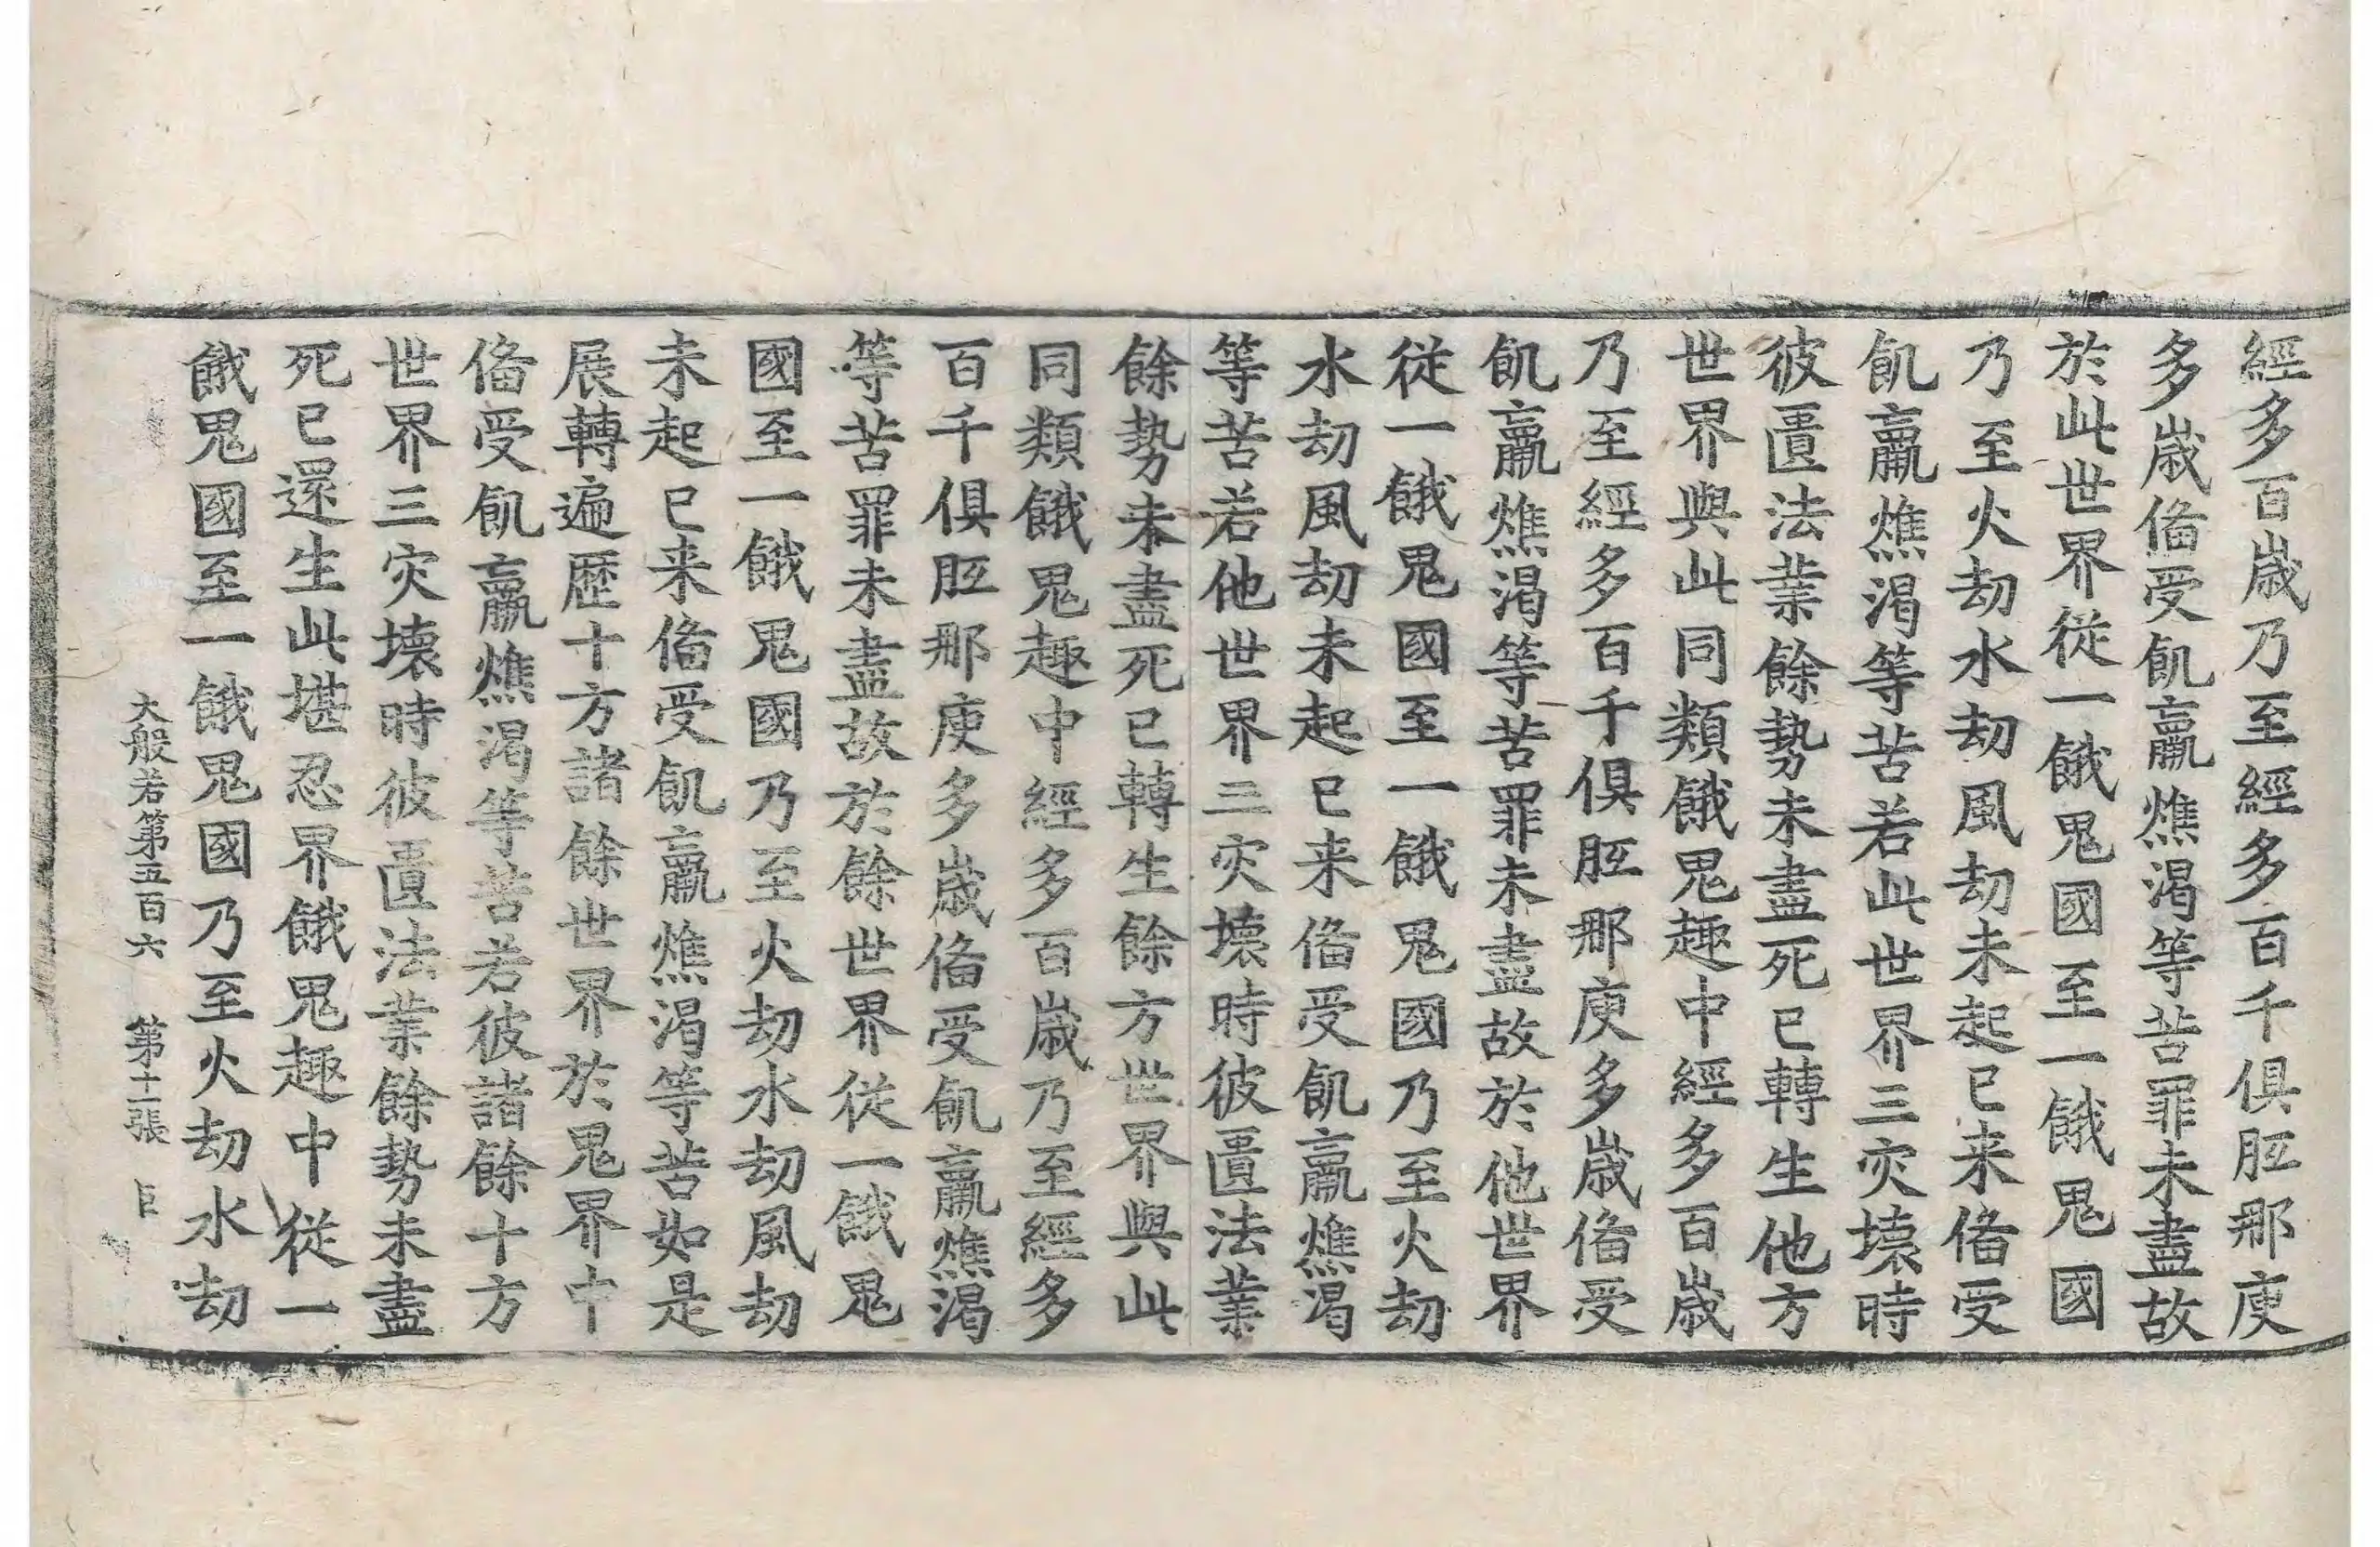 經多百歳乃至經多百千俱胝那庾
多歳俻受飢羸燋渇等苦罪未盡故
於此世界從一餓鬼國至一餓鬼國
乃至火劫水劫風劫未起已来俻受
飢羸燋渇等苦若此世界三灾壞時
彼匱法業餘勢未盡死已轉生他方
世界與此同類餓鬼趣中經多百歳
乃至經多百千俱胝那庾多歳俻受
飢羸燋渇等苦罪未盡故於他世界
從一餓鬼國至一餓鬼國乃至火劫
水劫風劫未起已来俻受飢羸燋渇
等苦若他世界三灾壞時彼匱法業
餘勢未盡死已轉生餘方世界與此
同類餓鬼趣中經多百歳乃至經多
百千俱胝那庾多歳俻受飢羸燋渇
等苦罪未盡故於餘世界從一餓鬼
國至一餓鬼國乃至火劫水劫風劫
未起已来俻受飢羸燋渇等苦如是
展轉遍歴十方諸餘世界於鬼界中
俻受飢羸燋渇等苦若彼諸餘十方
世界三灾壞時彼匱法業餘勢未盡
死已還生此堪忍界餓鬼趣中從一
餓鬼國至一餓鬼國乃至火劫水劫
大般若第五百六 第十二張